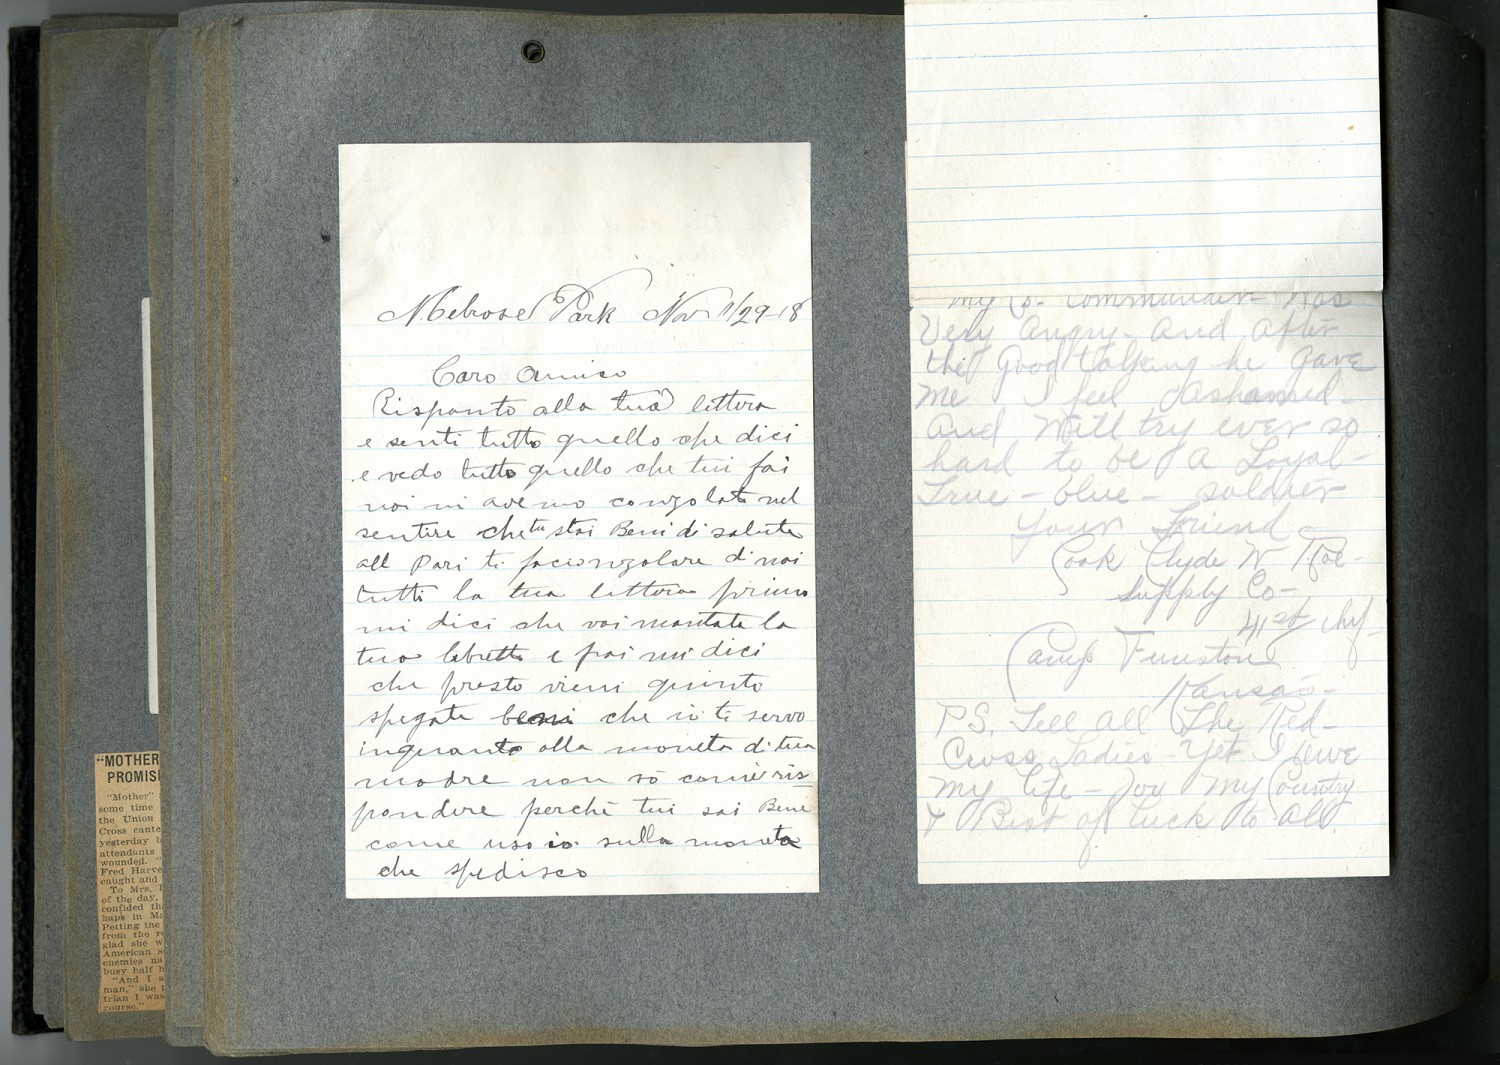 "MOTHER
PROMIS
"Mother"
some time
the Union
Cross cante
yesterday b
attendants
wounded. "
Fred Harve
caught and
To Mrs. 
of the day,
confided th
haps in Ma
Petting the
from the r
glad she w
American s
enemies na
busy half h
"And I a
man," she
trian I was
course."
Melrose Park Nov 11/29-18
Caro Amico
Risponto alla tua lettera
e senti tutto quello che dici
e vedo tutto quello che tui fai
noi ni avemo conzolate nel
sentire che tu stai Beni di salute
all Pari ti faccionzolare di noi
tutti la tua lettera primo
mi dici che voi mantata la
tuo labretto e poi mi dici
che presto vieni quinto
spegate beni che io te servo
inquanto alla moneta di tua
madre non so come ris
pondere perchè tui sai Bene
come uso io sulla moneta
che spedisco
My Co- commander- was
Very Angry- And After
the Good talking he gave
Me I feel ashamed-
And Will try ever so
hard to be A Loyal-
True- blue- soldier
Your Friend
Cook Clyde W
Supply Co-
41st
Camp Funston
Kansas-
P.S. Tell all The Red-
Cross Ladies- Yet I give
my life- For My Country
& Best of luck to All.